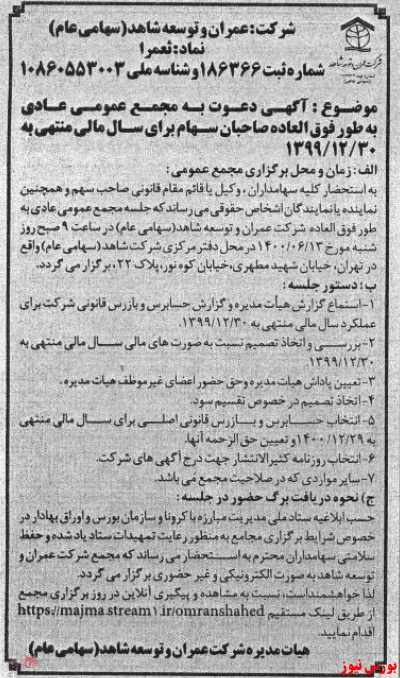 شرکت: عمران و توسعه شاهد (سهامی عام)
نماد: ثعمرا
شماره ثبت ۱۸۶۳۶۶ و شناسه ملی ۱۰۸۶۰۵۵۳۰۰۳
شرکت عمران و توسعه شاهد
موضوع: آگهی دعوت به مجمع عمومی عادی
به طور فوق العاده صاحبان سهام برای سال مالی منتهی به
۱۳۹۹/۱۲/۳۰
الف: زمان و محل برگزاری مجمع عمومی:
به استحضار کلیه سهامداران، وکیل یا قائم مقام قانونی صاحب سهم و همچنین
نماینده یا نمایندگان اشخاص حقوقی می رساند که جلسه مجمع عمومی عادی به
طور فوق العاده شرکت عمران و توسعه شاهد (سهامی عام) در ساعت ۹ صبح روز
شنبه مورخ ۱۴۰۰/۰۶/۱۳ در محل دفتر مرکزی شرکت شاهد (سهامی عام) واقع
در تهران، خیابان شهید مطهری، خیابان کوه نور، پلاک ۲۲، برگزار می گردد.
ب: دستور جلسه:
۱- استماع گزارش هیأت مدیره و گزارش حسابرس و بازرس قانونی شرکت برای
عملکرد سال مالی منتهی به ۱۳۹۹/۱۲/۳۰.
۲- بررسی و اتخاذ تصمیم نسبت به صورت های مالی سال مالی منتهی به
۱۳۹۹/۱۲/۳۰.
۳- تعیین پاداش هیات مدیره وحق حضور اعضای غیر موظف هیات مدیره.
۴- اتخاذ تصمیم در خصوص تقسیم سود.
۵- انتخاب حسابرس و بازرس قانونی اصلی برای سال مالی منتهی
به ۱۴۰۰/۱۲/۲۹ و تعیین حق الزحمه آنها.
۶- انتخاب روزنامه کثیرالانتشار جهت درج آگهی های شرکت.
۷- سایر مواردی که در صلاحیت مجمع می باشد.
ج) نحوه دریافت برگ حضور در جلسه:
حسب ابلاغیه ستاد ملی مدیریت مبارزه با کرونا و سازمان بورس و اوراق بهادار در
خصوص شرایط برگزاری مجامع به منظور رعایت تمهیدات ستاد یاد شده و حفظ
سلامتی سهامداران محترم به استحضار می رساند که مجمع شرکت عمران و
توسعه شاهد به صورت الکترونیکی و غیر حضوری برگزار می گردد.
لذا خواهشمند است، نسبت به مشاهده و پیگیری آنلاین در روز برگزاری مجمع
از طریق لینک مستقیم https://majma.stream1.ir/omranshahed
اقدام نمایید.
هیات مدیره شرکت عمران و توسعه شاهد (سهامی عام)
بورس نیوز